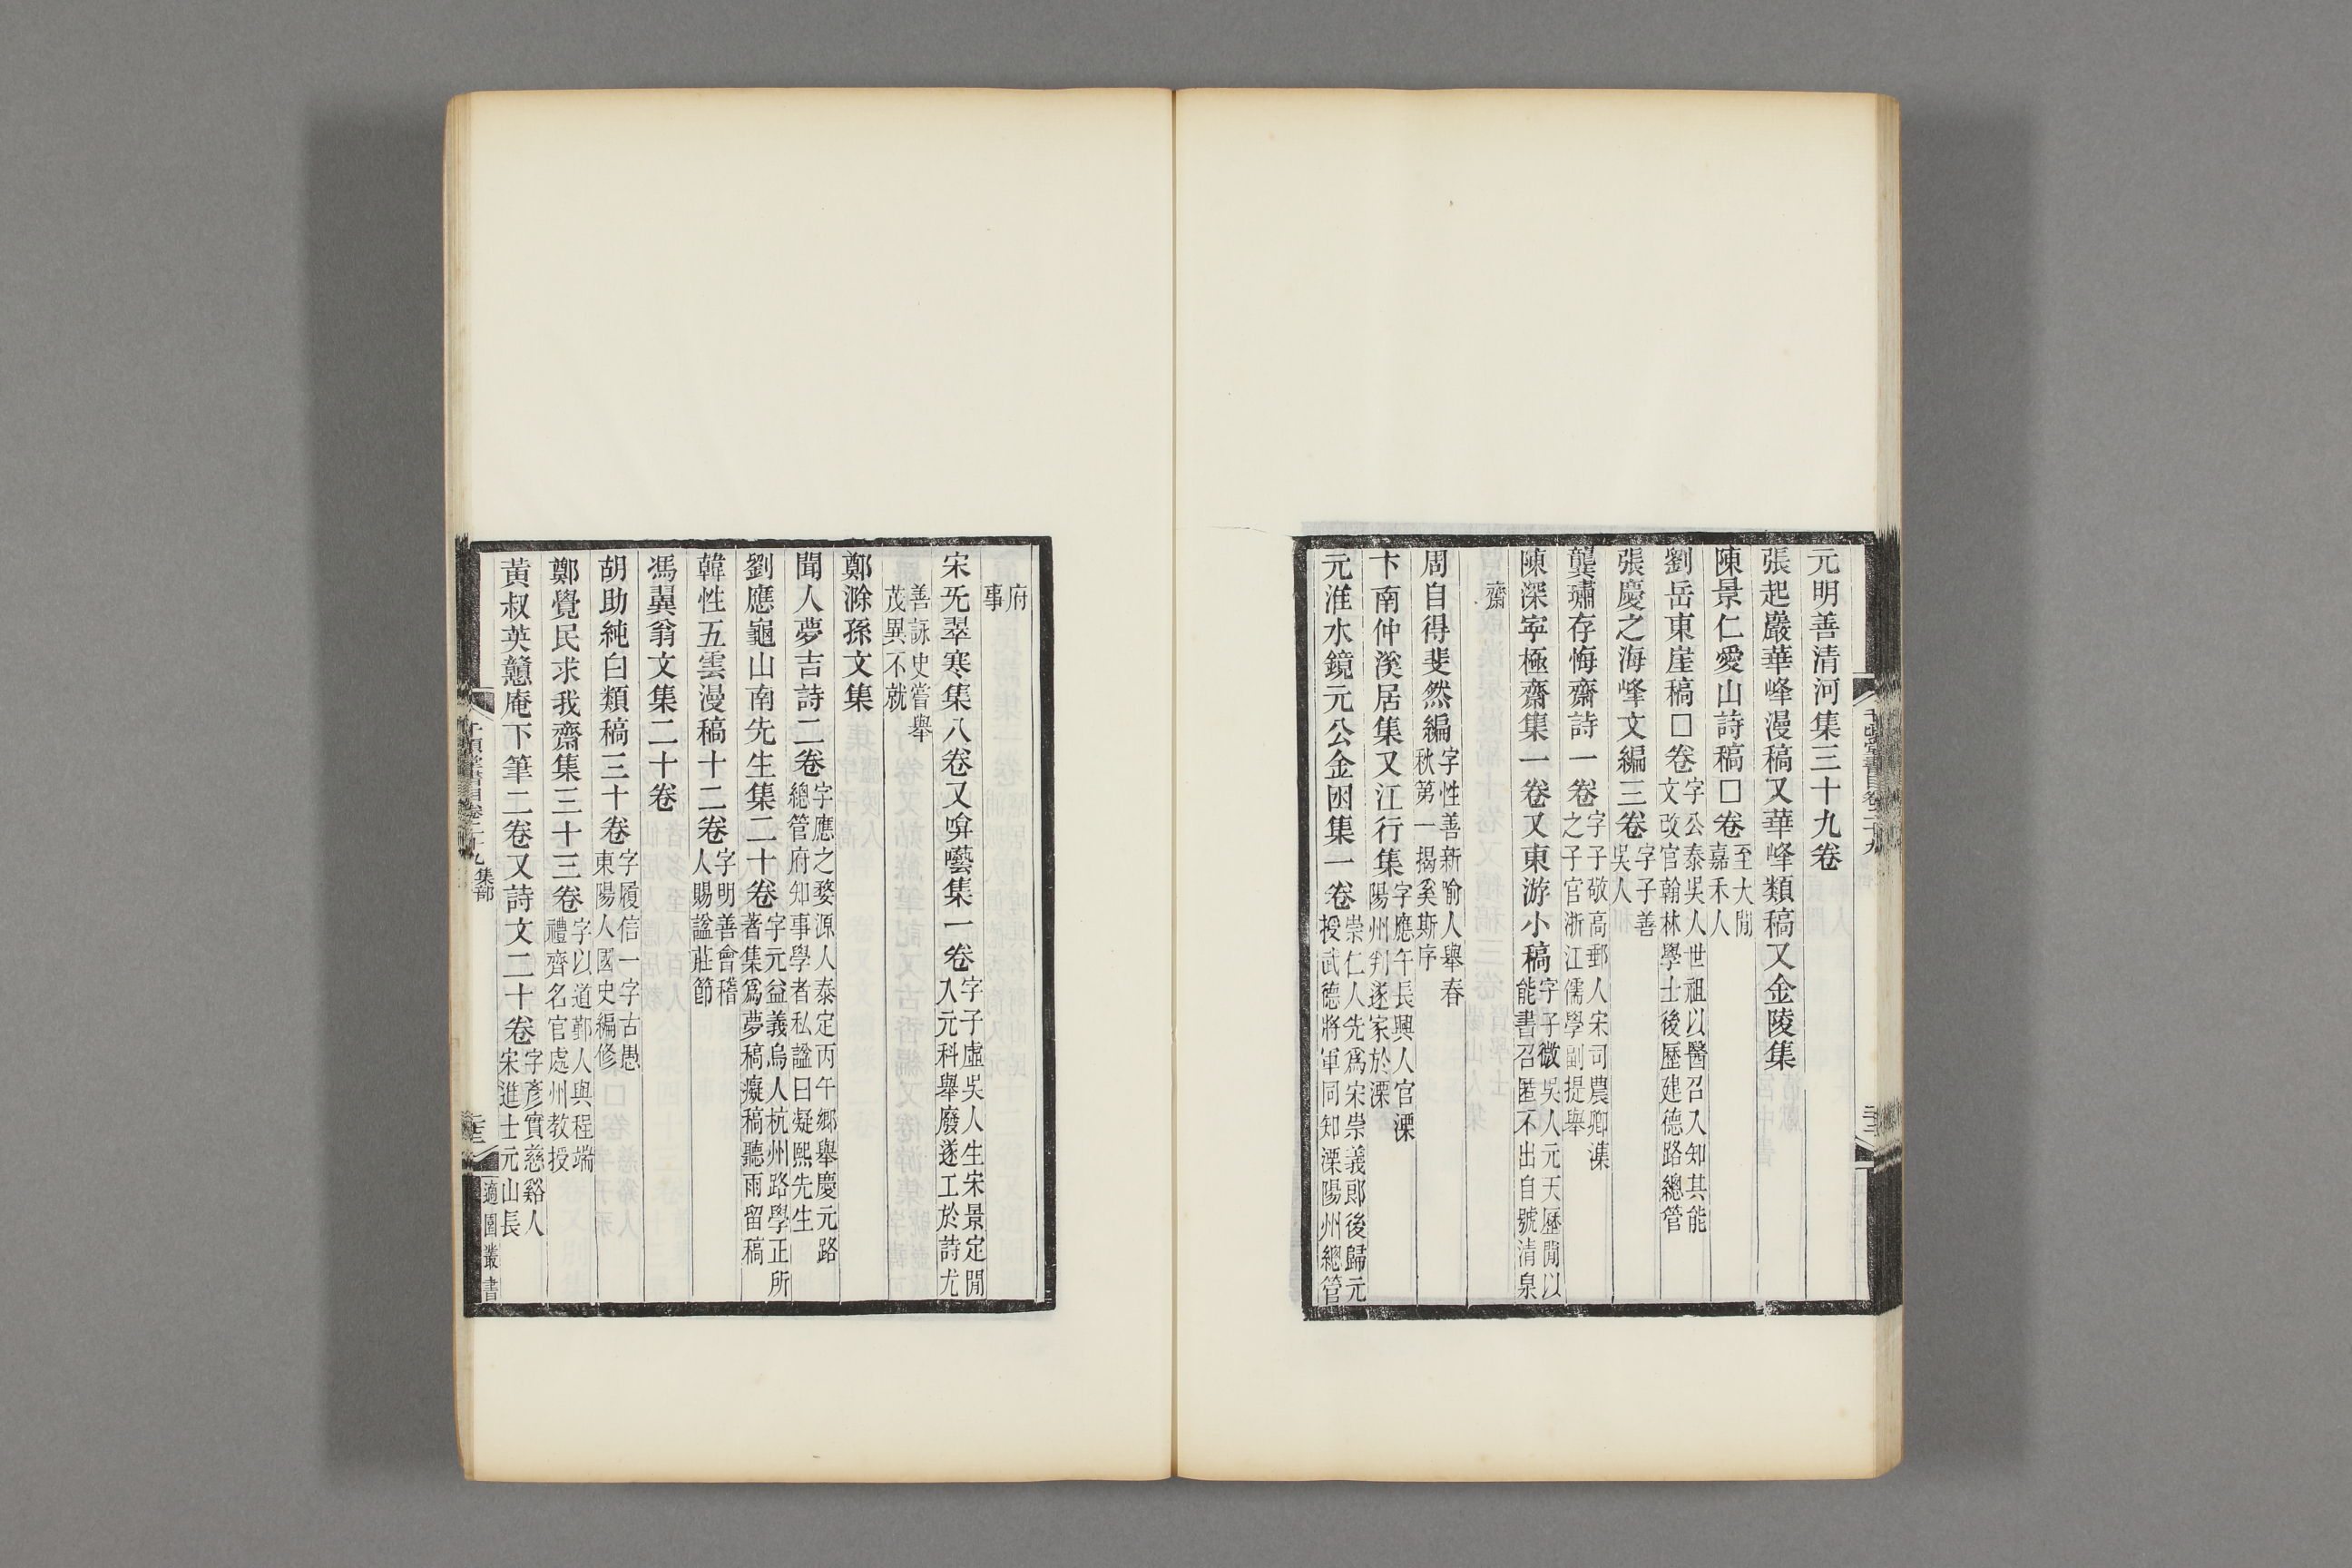 元明善清河集三十九卷
張起巖華峰漫稿又華峰類稿又金陵集
陳景仁愛山詩稿□卷至大閒嘉禾人
劉岳東崖稿□卷字公泰吳人世祖以醫召入知其能文改官翰林學士後歷建德路總管
張慶之海峰文編三卷字子善吳人
龔璛存悔齋詩一卷字子敬高郵人宋司農卿潗之子官浙江儒學副提舉
陳深寧極齋集一卷又東游小稿字子微吳人元天歷閒以能書召匿不出自號清泉
齋
周自得斐然編字性善新喻人舉春秋第一揭奚斯序
卞南仲溪居集又江行集字應午長興人官溧陽州判遂家於溧
元淮水鏡元公金囦集一卷崇仁人先爲宋崇義郎後歸元授武德將軍同知溧陽州總管
府事
宋旡翠寒集八卷又啽囈集一卷字子虛吳人生宋景定閒入元科舉廢遂工於詩尤
善詠史嘗舉茂異不就
鄭滁孫文集
聞人夢吉詩二卷字應之婺源人泰定丙午鄉舉慶元路總管府知事學者私諡曰凝熙先生
劉應龜山南先生集二十卷字元益義烏人杭州路學正所著集爲夢稿癡稿聽雨留稿
韓性五雲漫稿十二卷字明善會稽人賜諡莊節
馮翼翁文集二十卷
胡助純白類稿三十卷字履信一字古愚東陽人國史編修
鄭覺民求我齋集三十三卷字以道鄞人與程端禮齊名官處州教授
黃叔英戇庵下筆二卷又詩文二十卷字彥實慈谿人宋進士元山長
千頃堂書目卷二十九 集部
適園叢書